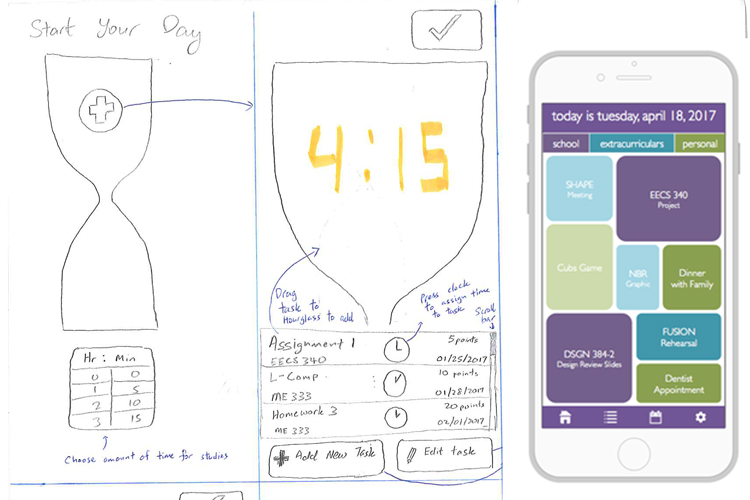 Start Your Day
Hr : Min
0 0
1 5
2 10
3 15
Choose amount of time for studies
4:15
Drag
task to
Hourglass to add
Press clock
to assign time
to task
Scroll
bar
Assignment 1 5 points
EECS 340 01/25/2017
L-Comp 10 points
ME 333 01/28/2017
Homework 3 20 points
ME 333 02/01/2017
Add New Task
Edit task
today is tuesday, april 18, 2017
school extracurriculars personal
SHAPE
Meeting
EECS 340
Project
Cubs Game
NBR
Graphic
Dinner
with Family
DSGN 384-2
Design Review Slides
FUSION
Rehearsal
Dentist
Appointment